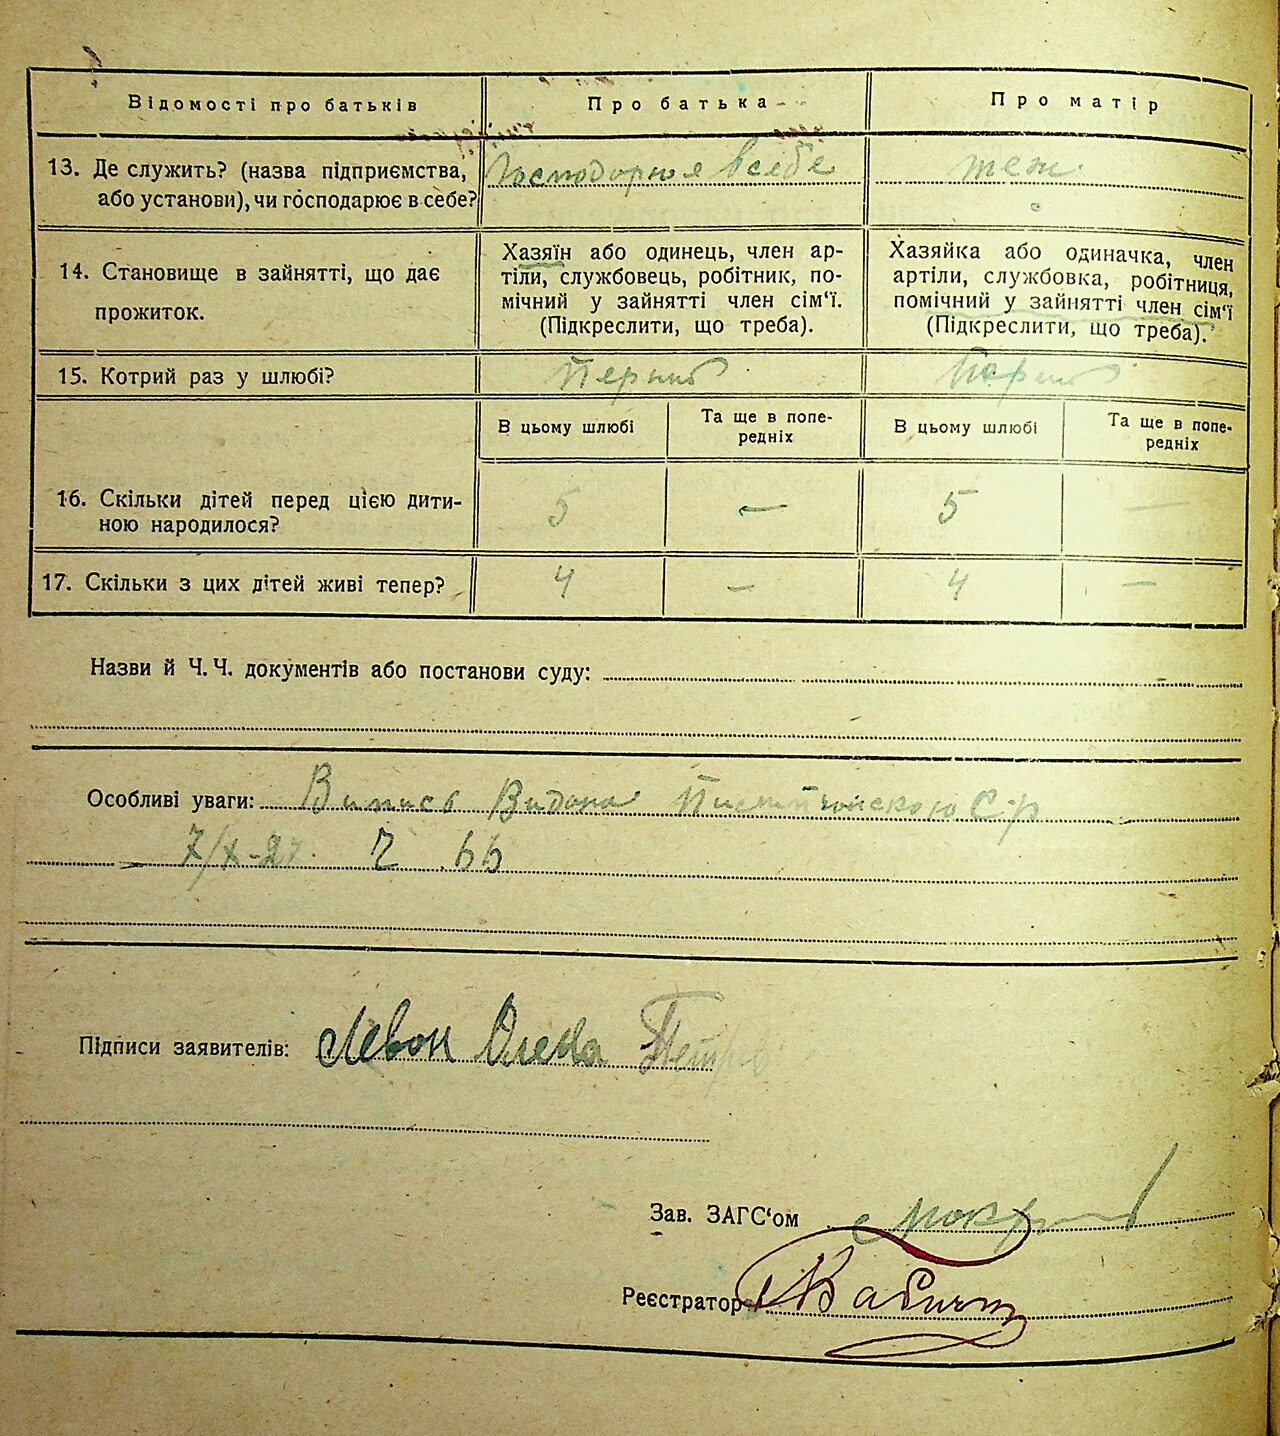 Відомості про батьків Про батька Про матір
13. Де служить? (назва підприємства, або установи), чи господарює в себе?
Господорює в себе
теж
14. Становище в зайнятті, що дає
прожиток.
Хазяїн або одинець, член ар-
тіли, службовець, робітник, по-
мічний у зайнятті член сім‘ї.
(Підкреслити, що треба).
Хазяйка або одиначка, член
артіли, службовка, робітниця,
помічний у зайнятті член сім‘ї
(Підкреслити, що треба).
15. Котрий раз у шлюбі? Перший Перший
В цьому шлюбі
Та ще в попе-
редніх
В цьому шлюбі
Та ще в попе-
редніх
16. Скільки дітей перед цією дити-
ною народилося?
5 — 5 —
17. Скільки з цих дітей живі тепер? 4 — 4 —
Назви й Ч. Ч. документів або постанови суду:
Особливі уваги: Випись Видана С-р
7/X-27 Ч 66
Підписи заявителів: Левон Олена Петров
Зав. ЗАГС‘ом
Реєстратор